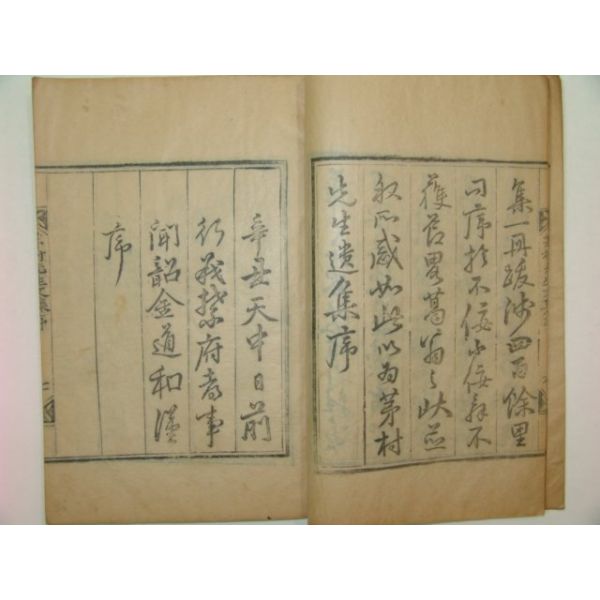 集一冊踰涉四百餘里
問序於不佞不佞辭不
獲茲畧葛翁之狀並
叙所感如此以為茅村
先生遺集序
辛丑天中日前
行義禁府都事
聞韶金道和謹
序